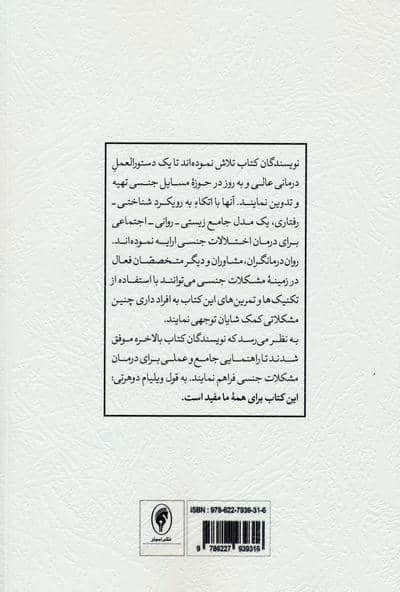 نویسندگان کتاب تلاش نموده‌اند تا یک دستورالعمل
درمانی عالی و به روز در حوزهٔ مسایل جنسی تهیه
و تدوین نمایند. آنها با اتکاءِ به رویکرد شناختی ـ
رفتاری، یک مدل جامع زیستی ـ روانی ـ اجتماعی
برای درمان اختلالات جنسی ارایه نموده‌اند.
روان‌درمانگران، مشاوران و دیگر متخصصّان فعال
در زمینهٔ مشکلات جنسی می‌توانند با استفاده از
تکنیک‌ها و تمرین‌های این کتاب به افراد داری چنین
مشکلاتی کمک شایان توجهی نمایند.
به نظر می‌رسد که نویسندگان کتاب بالاخره موفق
شدند تا راهنمایی جامع و عملی برای درمان
مشکلات جنسی فراهم نمایند. به قول ویلیام دوهرتی:
این کتاب برای همهٔ ما مفید است.
ISBN: 978-622-7939-31-6
9 786227 939316